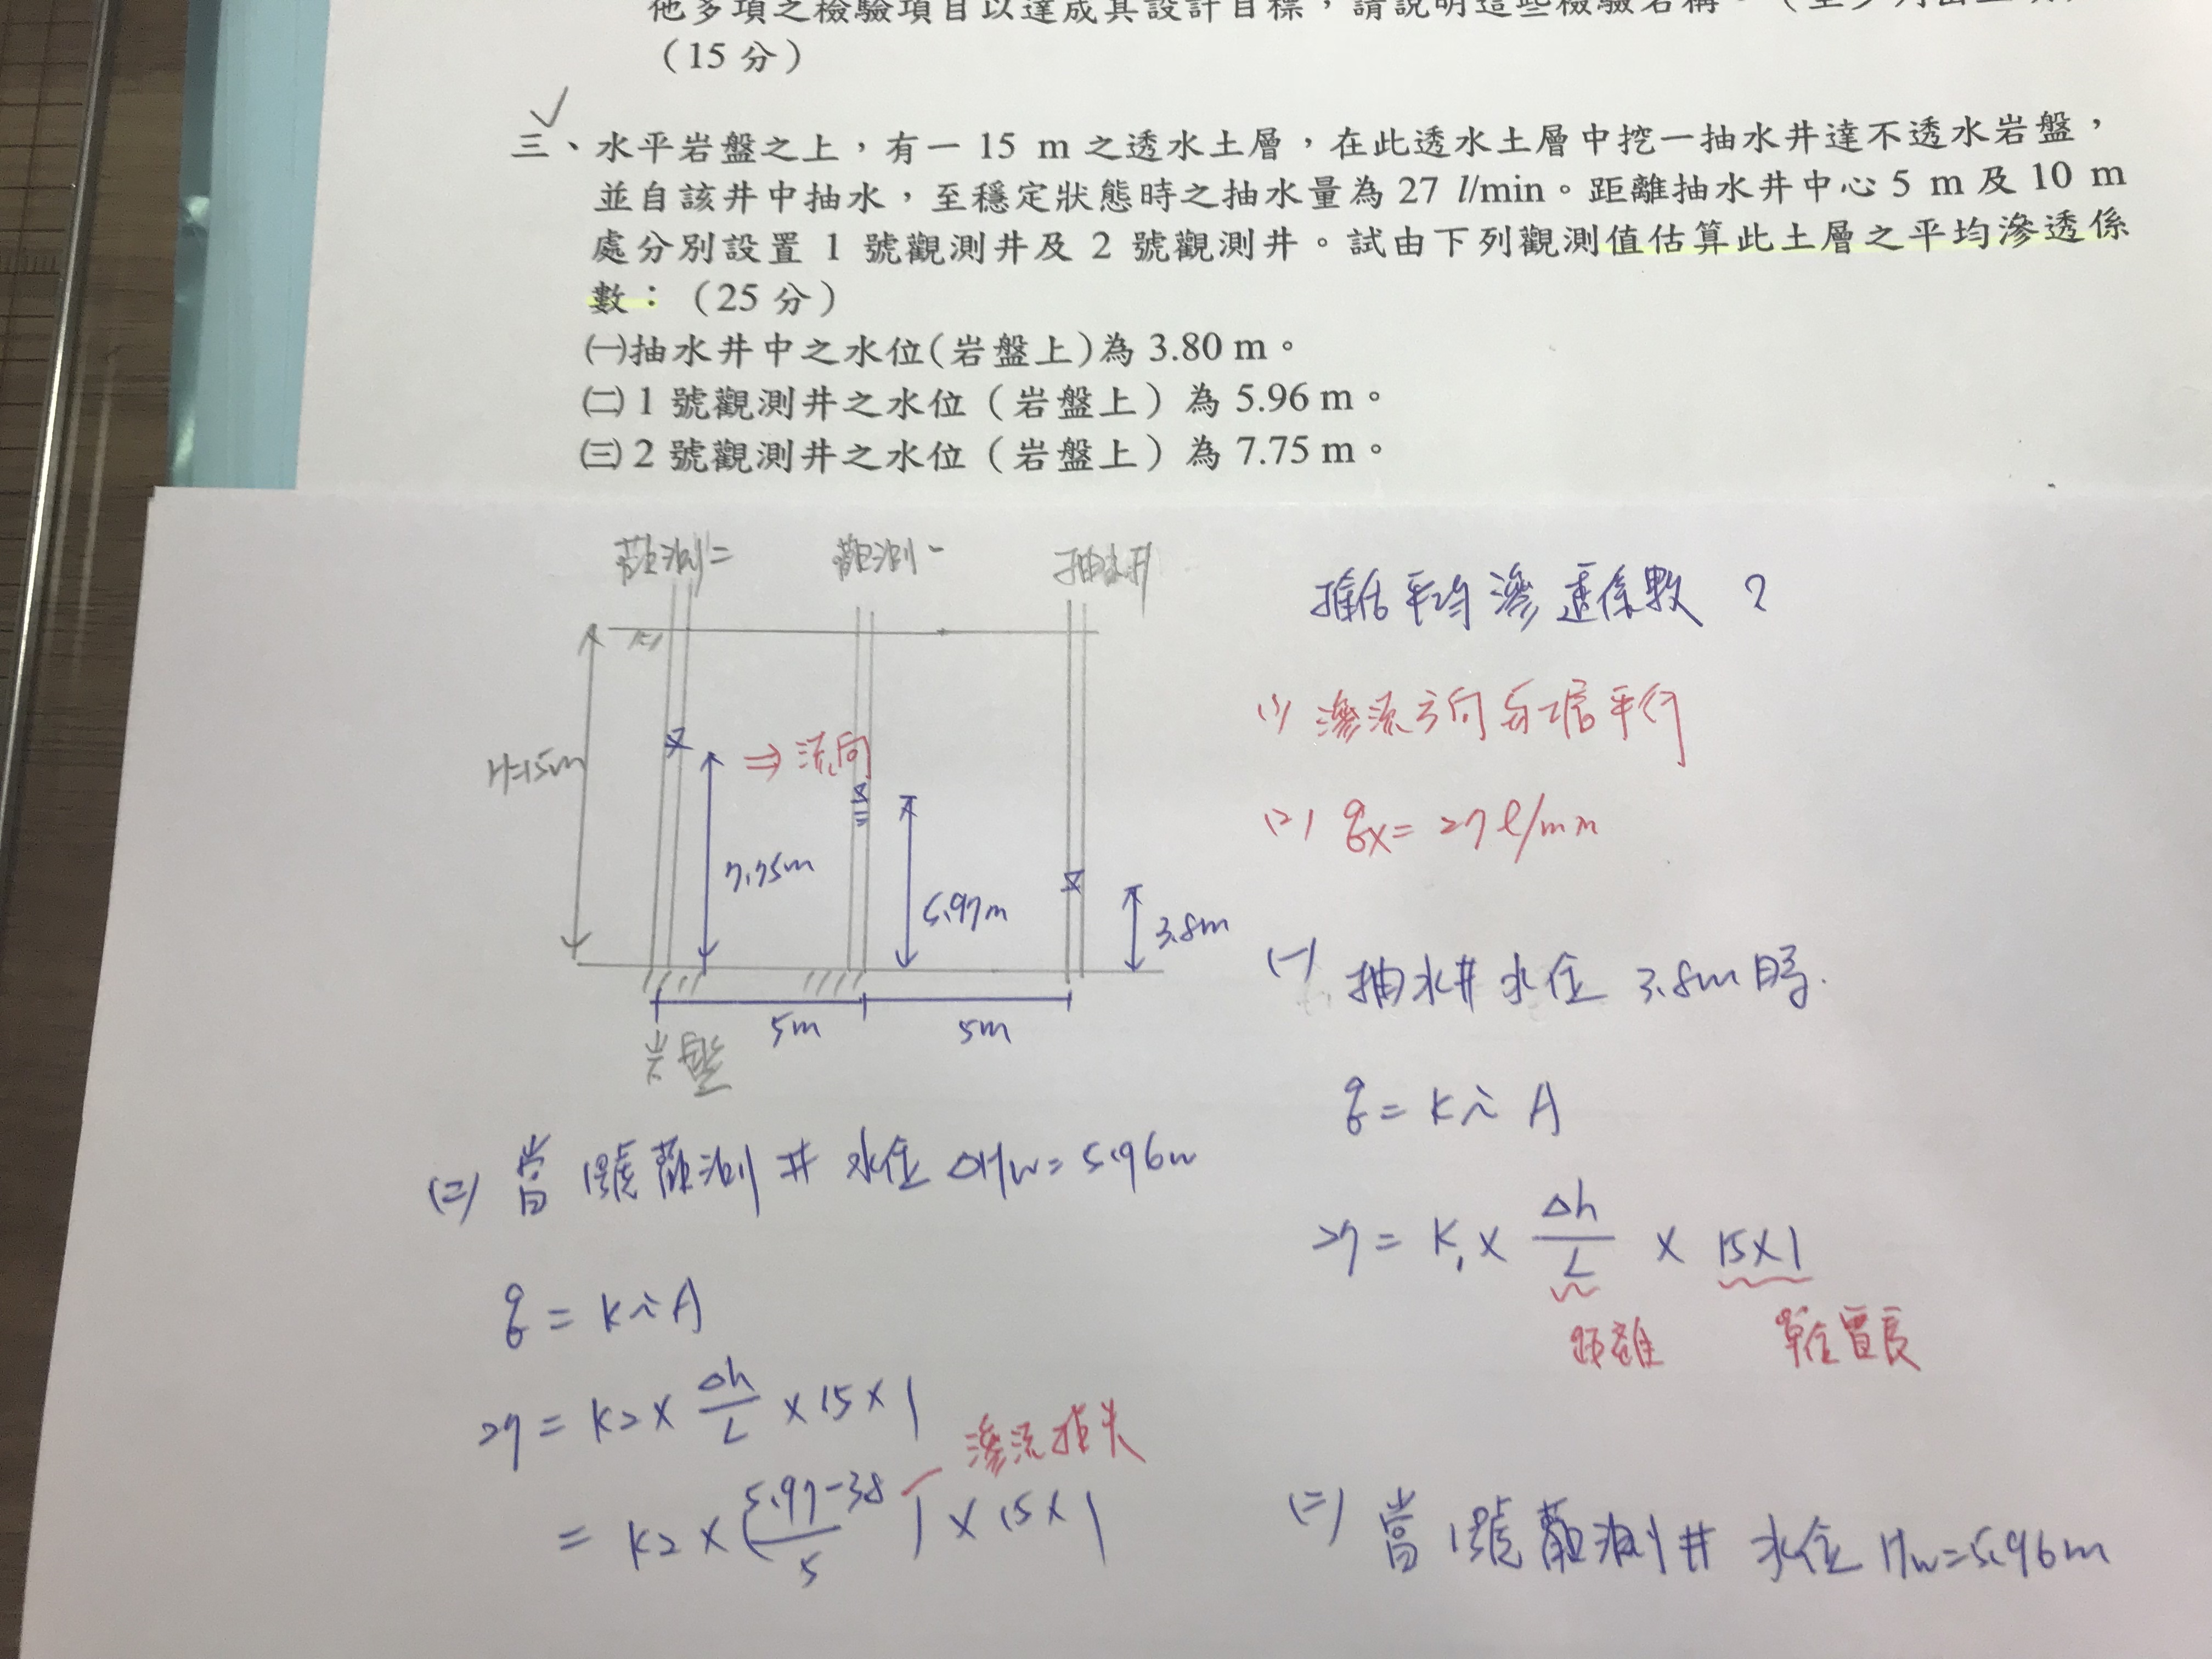 他多項之檢驗項目以達成其設計目標,請說明這些檢驗名稱。(至少列出三項)
(15 分)
三、水平岩盤之上,有一 15 m 之透水土層,在此透水土層中挖一抽水井達不透水岩盤,
並自該井中抽水,至穩定狀態時之抽水量為 27 l/min。距離抽水井中心 5 m 及 10 m
處分別設置 1 號觀測井及 2 號觀測井。試由下列觀測值估算此土層之平均滲透係
數:(25 分)
㈠抽水井中之水位(岩盤上)為 3.80 m。
㈡1 號觀測井之水位(岩盤上)為 5.96 m。
㈢2 號觀測井之水位(岩盤上)為 7.75 m。
觀測二 觀測一 抽水井
H=15m
⇒ 流向
7.75m
5.97m
3.8m
5m 5m
岩盤
推估平均滲透係數?
(1) 滲流方向與土層平行
(2) qx = 27 l/min
(一) 抽水井水位 3.8m時.
q = k i A
27 = K1 × Δh/L × 15×1
距離 單位寬長
(二) 當1號觀測井水位 ΔHw = 5.96m
q = k i A
27 = K2 × Δh/L × 15 × 1
= K2 × (5.97-3.8/5) × 15 × 1
滲流損失
(二) 當1號觀測井 水位 Hw=5.96m